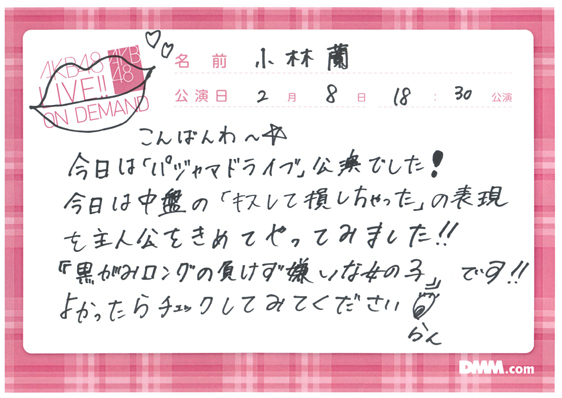 AKB48
LIVE!!
ON DEMAND
AKB
48
名前 小林蘭
公演日 2月8日 18:30公演
こんばんわ〜☆
今日は「パジャマドライブ」公演でした!
今日は中盤の「キスして損しちゃった」の表現
を主人公をきめてやってみました!!
『黒がみロングの負けず嫌いな女の子』です!!
よかったらチェックしてみてください
らん
DMM.com